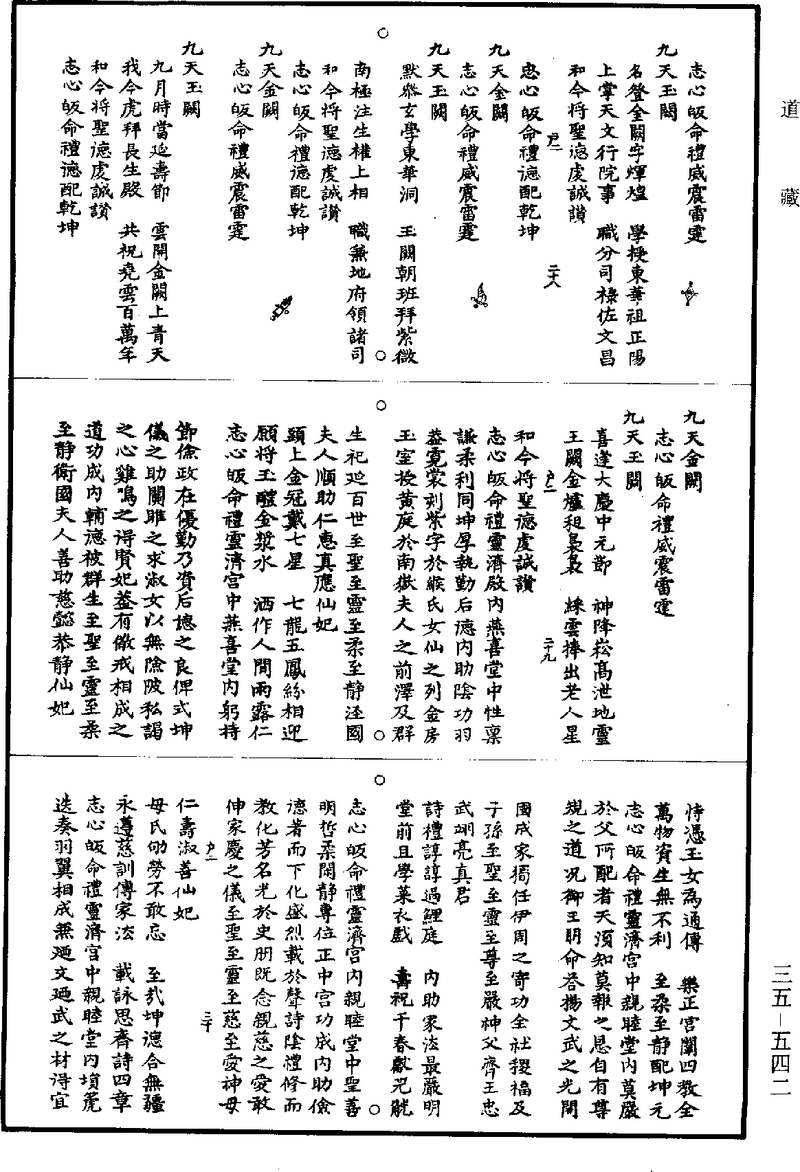 道藏
志心皈命禮威震雷霆
九天玉闕
名登金闕字煇煌 學授東華祖正陽
上掌天文行院事 職分司祿佐文昌
和今將聖德虔誠讚
忠心皈命禮德配乾坤
九天金闕
志心皈命禮威震雷霆
九天玉闕
默叅玄學東華洞 玉闕朝班拜紫微
南極注生權上相 職兼地府領諸司
和今將聖德虔誠讚
志心皈命禮德配乾坤
九天金闕
志心皈命禮威震雷霆
九天玉闕
九月時當延壽節 雲開金闕上青天
我今虎拜長生殿 共祝堯雲百萬年
和今將聖德虔誠讚
志心皈命禮德配乾坤
二十八
九天金闕
志心皈命禮威震雷霆
九天玉闕
喜逢大慶中元節 神降崧高泄地靈
玉闕金爐租裊裊 綵雲捧出老人星
二十九
和今將聖德虔誠讚
志心皈命禮靈濟殿內燕喜堂中性稟
謙柔利同坤厚執勤后德內助陰功羽
葢霓裳刻紫字於緱氏女仙之列金房
玉室授黃庭於南嶽夫人之前澤及群
生祀延百世至聖至靈至柔至靜涇國
夫人順助仁惠真應仙妃
頭上金冠戴七星 七龍五鳳紛相迎
願將玉醴金漿水 洒作人間雨露仁
志心皈命禮靈濟宮中燕喜堂內躬持
節儉政在優勤乃資后德之良俾式坤
儀之助關雎之求淑女以無險陂私謁
之心雞鳴之得賢妃葢有儆戒相成之
道功成內輔德被群生至聖至靈至柔
至靜衛國夫人善助慈懿恭靜仙妃
恃憑玉女為通傳 樂正宮闈四敎全
萬物資生無不利 至柔至靜配坤元
志心皈命禮靈濟宮中親睦堂內莫嚴
於父所配者天須知莫報之恩自有尊
規之道況御王明命荅揚文武之光開
國成家獨任伊周之寄功全社稷福及
子孫至聖至靈至尊至嚴神父齊王忠
武翊亮真君
詩禮諄諄過鯉庭 內助家法最嚴明
堂前且學萊衣戲 壽祝千春獻兕觥
志心皈命禮靈濟宮內親睦堂中聖善
明哲柔閑靜專位正中宮功成內助儉
德著而下化盛烈載於聲詩陰禮修而
敎化芳名光於史册既念親慈之愛敢
伸家慶之儀至聖至靈至慈至愛神母
仁壽淑善仙妃
三十
母氏劬勞不敢忘 至㢤坤德合無疆
永遵慈訓傳家法 載詠思齊詩四章
志心皈命禮靈濟宮中親睦堂內塤箎
迭奏羽翼相成兼廼文廼武之材得宜
三五—五四二